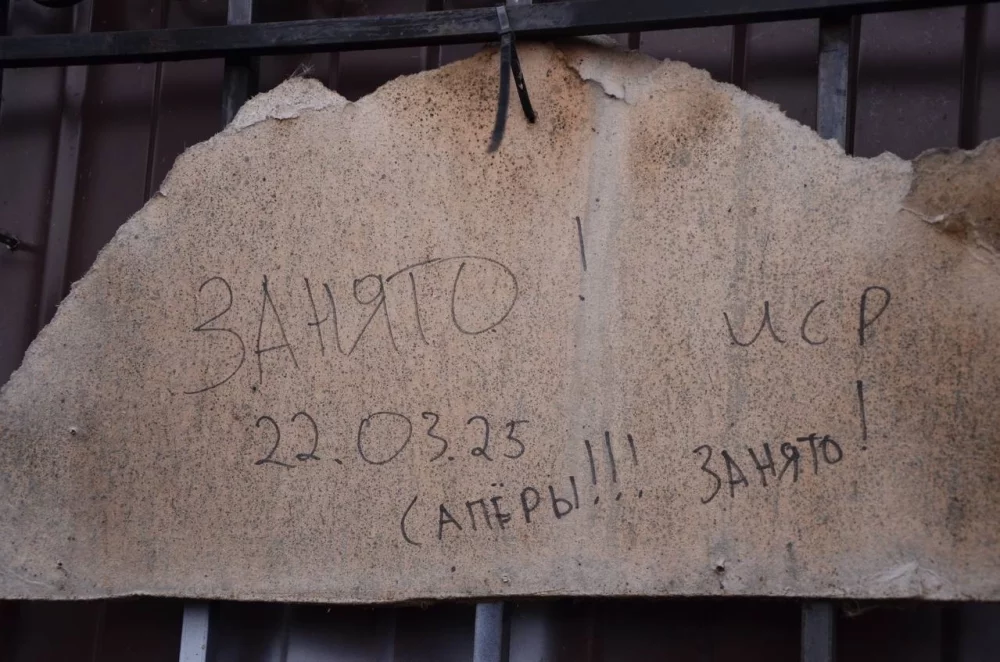 ЗАНЯТО !
ИСР
22.03.25
САПЁРЫ!!! ЗАНЯТО!